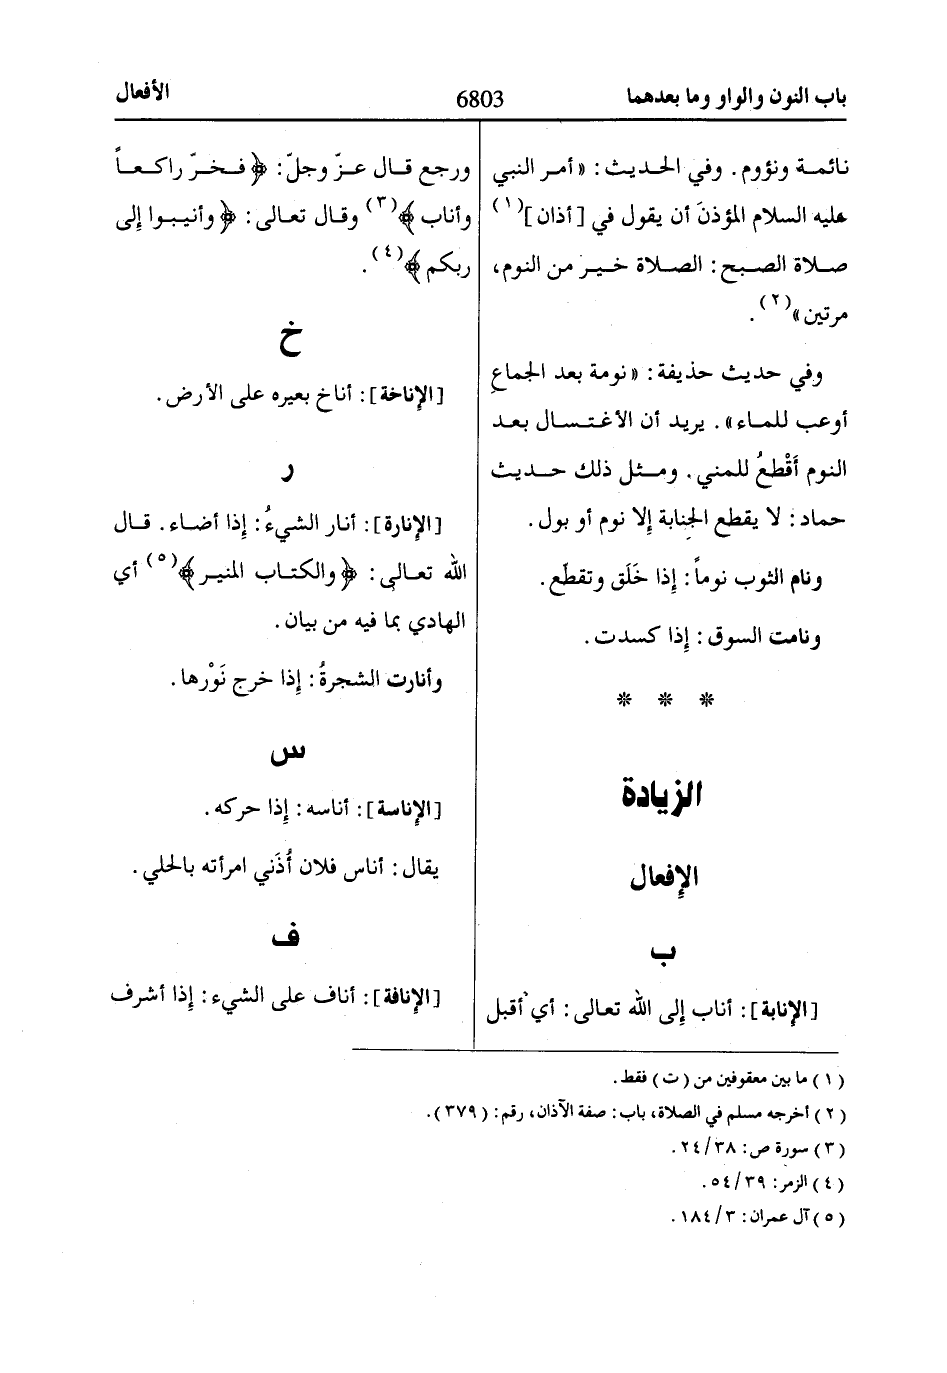 باب النون والواو وما بعدهما
6803
الأفعال
نائمة ونؤوم. وفي الحديث: «أمر النبي
عليه السلام المؤذنَ أن يقول في [أذان](١)
صلاة الصبح: الصلاة خير من النوم،
مرتين»(٢).
وفي حديث حذيفة: «نومة بعد الجماعِ
أوعب للماء». يريد أن الأغتسال بعد
النوم أَقْطعُ للمني. ومثل ذلك حديث
حماد: لا يقطع الجنابة إلا نوم أو بول.
ونام الثوب نوماً: إذا خَلَق وتقطَع.
ونامت السوق: إذا كسدت.
* * *
الزيادة
الإفعال
ب
[الإنابة]: أناب إلى الله تعالى: أي أقبل
ورجع قال عزّ وجلّ: ﴿فخرّ راكعاً
وأناب﴾(٣) وقال تعالى: ﴿وأنيبوا إلى
ربكم﴾(٤).
خ
[الإناخة]: أناخ بعيره على الأرض.
ر
[الإنارة]: أنار الشيءُ: إذا أضاء. قال
الله تعالى: ﴿والكتاب المنير﴾(٥) أي
الهادي بما فيه من بيان.
وأنارت الشجرةُ: إذا خرج نَوْرها.
س
[الإناسة]: أناسه: إذا حركه.
يقال: أناس فلان أُذَني امرأته بالحلي.
ف
[الإنافة]: أناف على الشيء: إذا أشرف
(١) ما بين معقوفين من (ت) فقط.
(٢) أخرجه مسلم في الصلاة، باب: صفة الآذان، رقم: (٣٧٩).
(٣) سورة ص: ٣٨/ ٢٤.
(٤) الزمر: ٣٩/ ٥٤.
(٥) آل عمران: ٣/ ١٨٤.